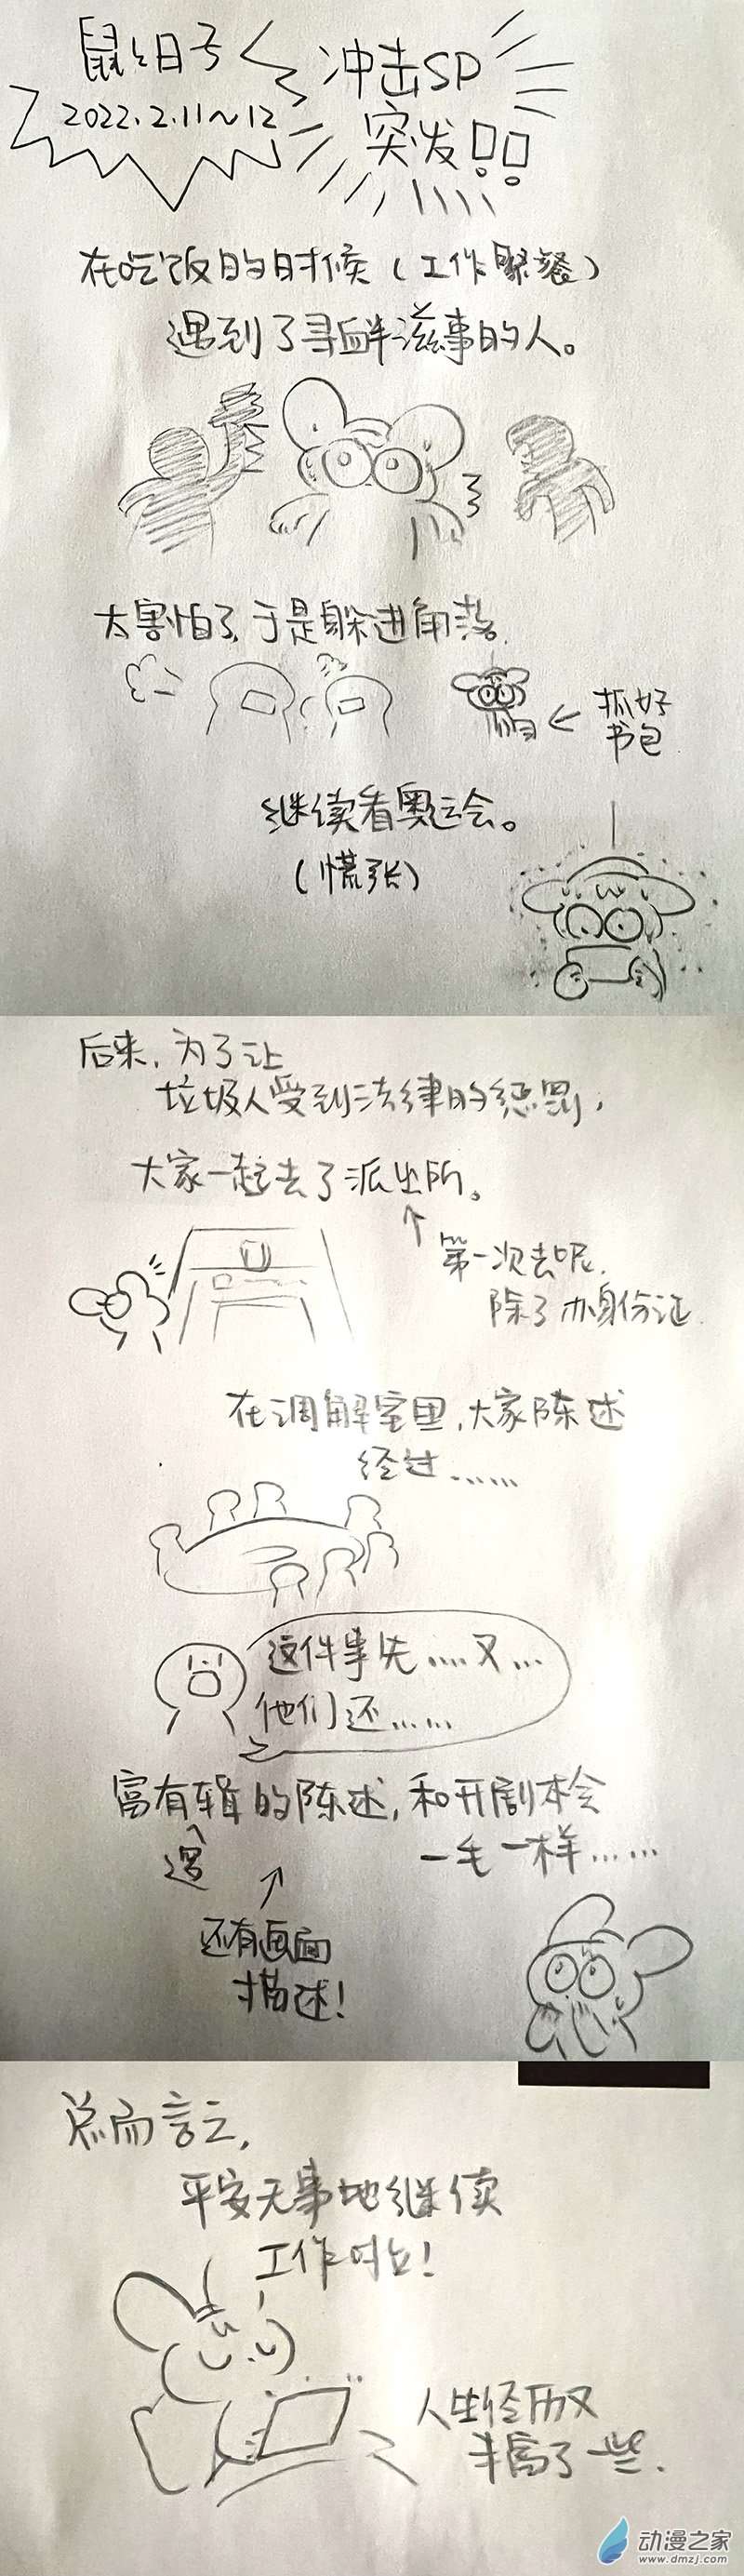 鼠々日子
2022.2.11~12
冲击SP
突发!!
在吃饭的时候(工作聚餐)
遇到了寻衅滋事的人。
太害怕了,于是躲进角落.
抓好
书包
继续看奥运会。
(慌张)
后来,为了让
垃圾人受到法律的惩罚,
大家一起去了派出所。
第一次去呢.
除了办身份证.
在调解室里,大家陈述
经过......
这件事先....又...
他们还......
富有辑的陈述,和开剧本会
逻
一毛一样......
还有画面
描述!
总而言之,
平安无事地继续
工作时台!
人生经历又
丰富了一些.
动漫之家
www.dmzj.com